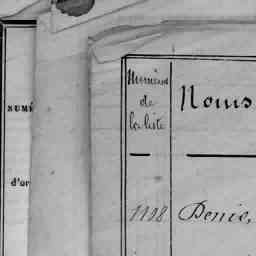 Numéros
de
la liste
Noms
NUMÉ
d'or
1198
Denis,